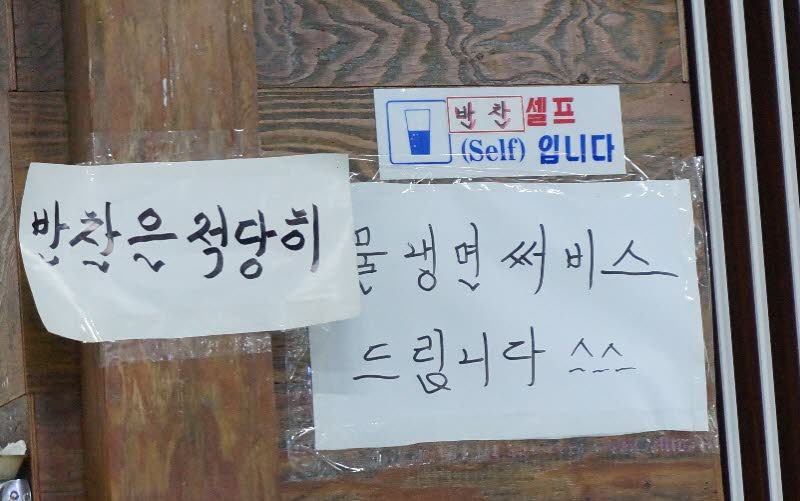 반찬 셀프
(Self) 입니다
반찬은 적당히
물냉면 써비스
드립니다 ^^